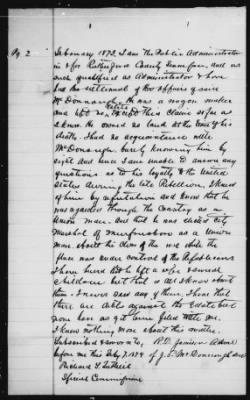 Pg. 2
February 1873, I am the Public Administrator
in & for Rutherford County Tennessee, and as
such qualified as Administrator & have
has the settlement of the affairs of said
McDonnough. He was a wagon maker
and left no estate except this claim so far as
I know. He owned no land at the time of his
death. I had no acquaintance with
McDonough barely knowing him by
sight and hence I am unable to answer any
questions as to his loyalty to the United
States during the late Rebellion. I knew
of him by reputation and know that he
was regarded through the Country as a
Union man. and that he was elected city
Marshal of Murfreesboro as a Union
man about the close of the war while the
place was under control of the Republicans
I have heard that he left a wife & several
children but that is all I know about
them. I never saw any of them. I hear that
there are debts against the Estate but
none have as yet been filed with me.
I know nothing more about this matter.
Subscribed & sworn to
before me this July 7, 1874
Special Commissioner
R.D. Jamison Admr
of J. McDonnough decd